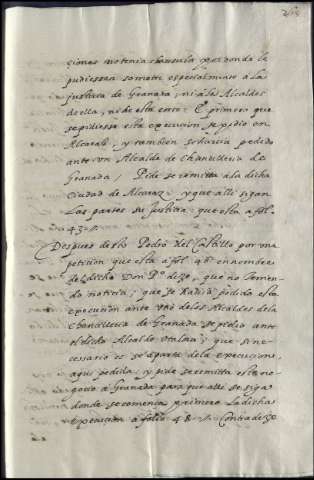 ciones no tenia clausula por donde le
pudiessen someter especialmente a la
justicia de Granada, ni a los Alcaldes
della, ni de esta corte: E primero que
se pidiesse esta execucion, se pidio en
Alcaraz, y tambien se havia pedido
ante un Alcalde de Chancilleria de
Granada / Pide se remitta a la dicha
Ciudad de Alcaraz, y que alli sigan
las partes su Justicia: que esta a fol.
43.
Despues desto Pedro del Castillo por una
peticion que esta a fol. 48 en nombre
del dicho Don P.º dize, que no temien
do noticia, que se havia pedido esta
execucion ante uno de los Alcaldes de la
Chancilleria de Granada, se pidio ante
el dicho Alcalde Otalora; que si ne-
cessario es se aparta de la execucion
aqui pedida, y pide se remitta este ne-
gocio a Granada para que alli se siga
donde se començo primero la dicha
execucion a folio 48. Contradize